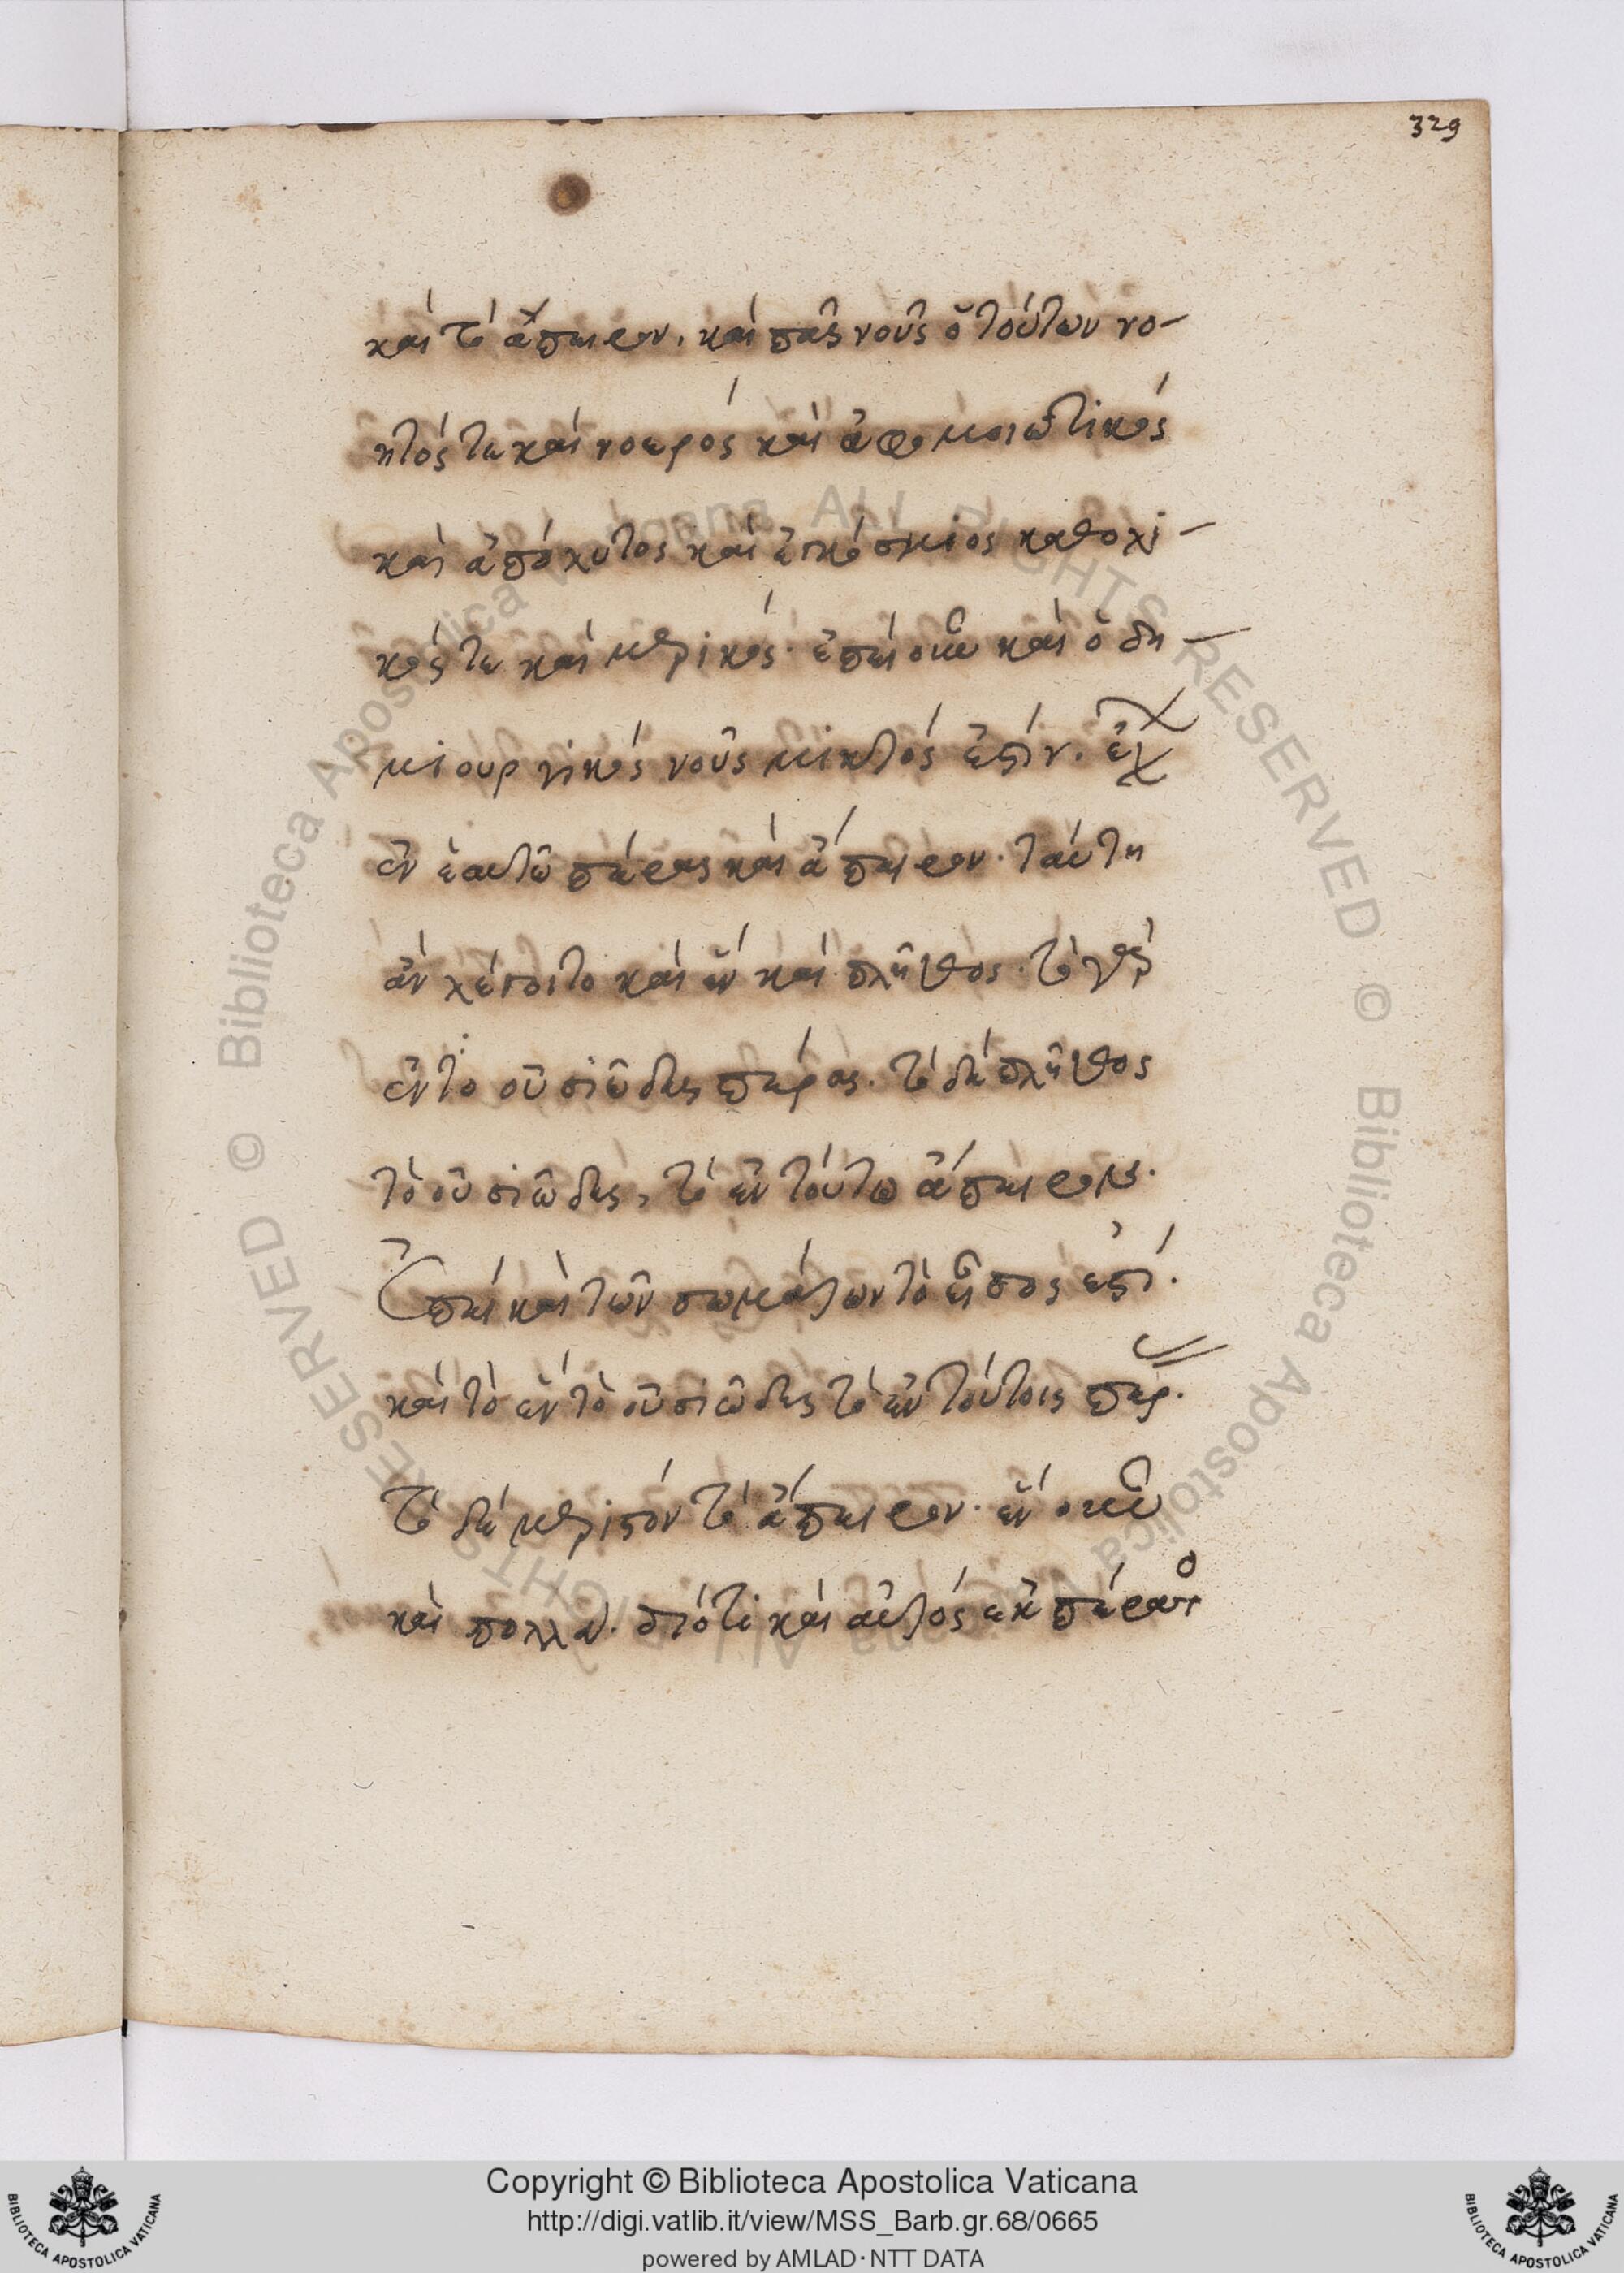 329
καὶ τὸ ἄπειρον. καὶ πᾶς νοῦς ὁ τούτων νο-
ητός τε καὶ νοερὸς καὶ ἀφομοιωτικὸς
καὶ ἀπόλυτος καὶ ἐγκόσμιος καθολι-
κός τε καὶ μερικός. ἐπεὶ οὖν καὶ ὁ δη-
μιουργικὸς νοῦς μικτός ἐστιν. ἔχει
ἐν ἑαυτῷ πέρας καὶ ἄπειρον. ταύτῃ
ἂν λέγοιτο καὶ ἓν καὶ πλῆθος. τὸ γὰρ
ἓν τὸ οὐσιῶδες πέρας. τὸ δὲ πλῆθος
τὸ οὐσιῶδες, τὸ ἐν τούτῳ ἄπειρον.
Ἐπεὶ καὶ τῶν σωμάτων τὸ εἶδός ἐστι.
καὶ τὸ ἓν τὸ οὐσιῶδες τὸ ἐν τούτοις πέρ.
τὸ δὲ μεριστὸν τὸ ἄπειρον. ἓν οὖν
καὶ πολλὰ. διότι καὶ αὐτὸς ἐκ πέρατος
Copyright © Biblioteca Apostolica Vaticana
http://digi.vatlib.it/view/MSS_Barb.gr.68/0665
powered by AMLAD·NTT DATA
BIBLIOTECA APOSTOLICA VATICANA
BIBLIOTECA APOSTOLICA VATICANA